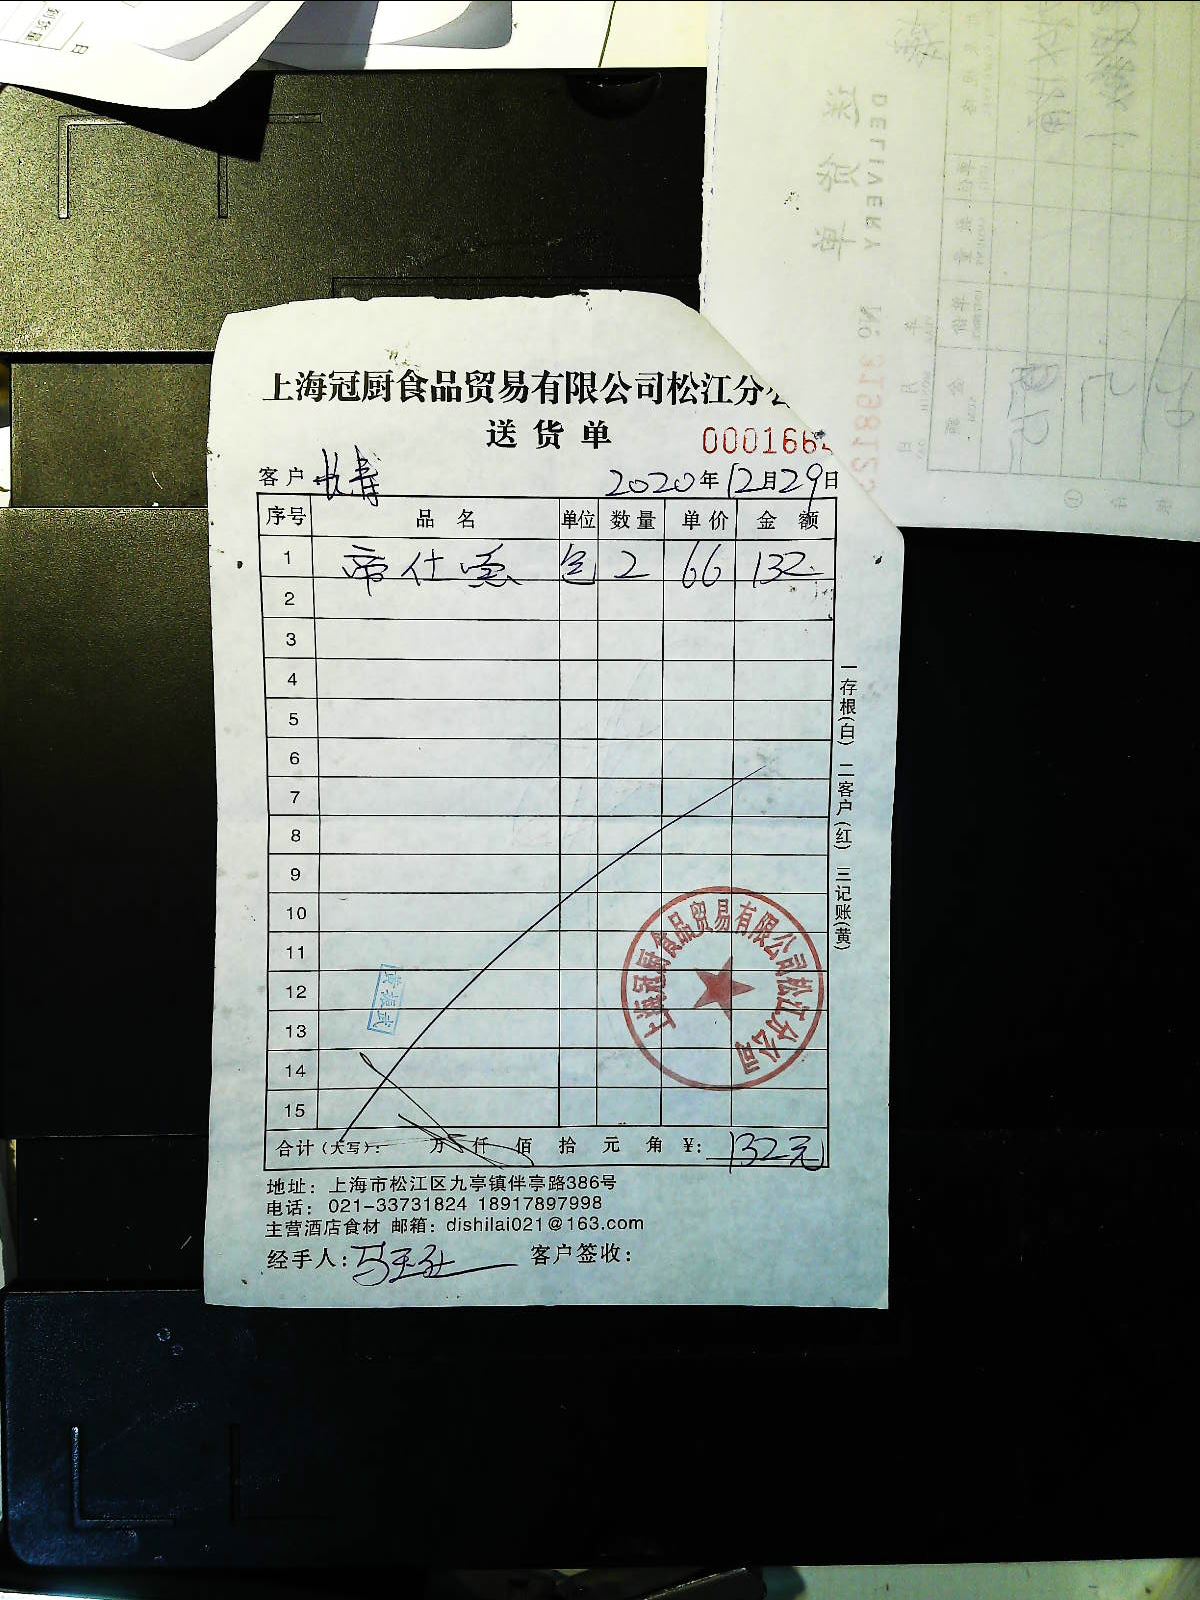 上海冠厨食品贸易有限公司松江分公
送货单
000166
客户 长寿 2020年12月29日
序号 品名 单位 数量 单价 金额
1 帝仕 包 2 66 132
2
3
4
5
6
7
8
9
10
11
12
13
14
15
合计(大写): 万 仟 佰 拾 元 角 ¥: 132元
地址：上海市松江区九亭镇伴亭路386号
电话：021-33731824 18917897998
主营酒店食材 邮箱：dishilai021@163.com
经手人: 马 客户签收:
一存根(白) 二客户(红) 三记账(黄)
上海冠厨食品贸易有限公司松江分公司
送货单
DELIVERY
No